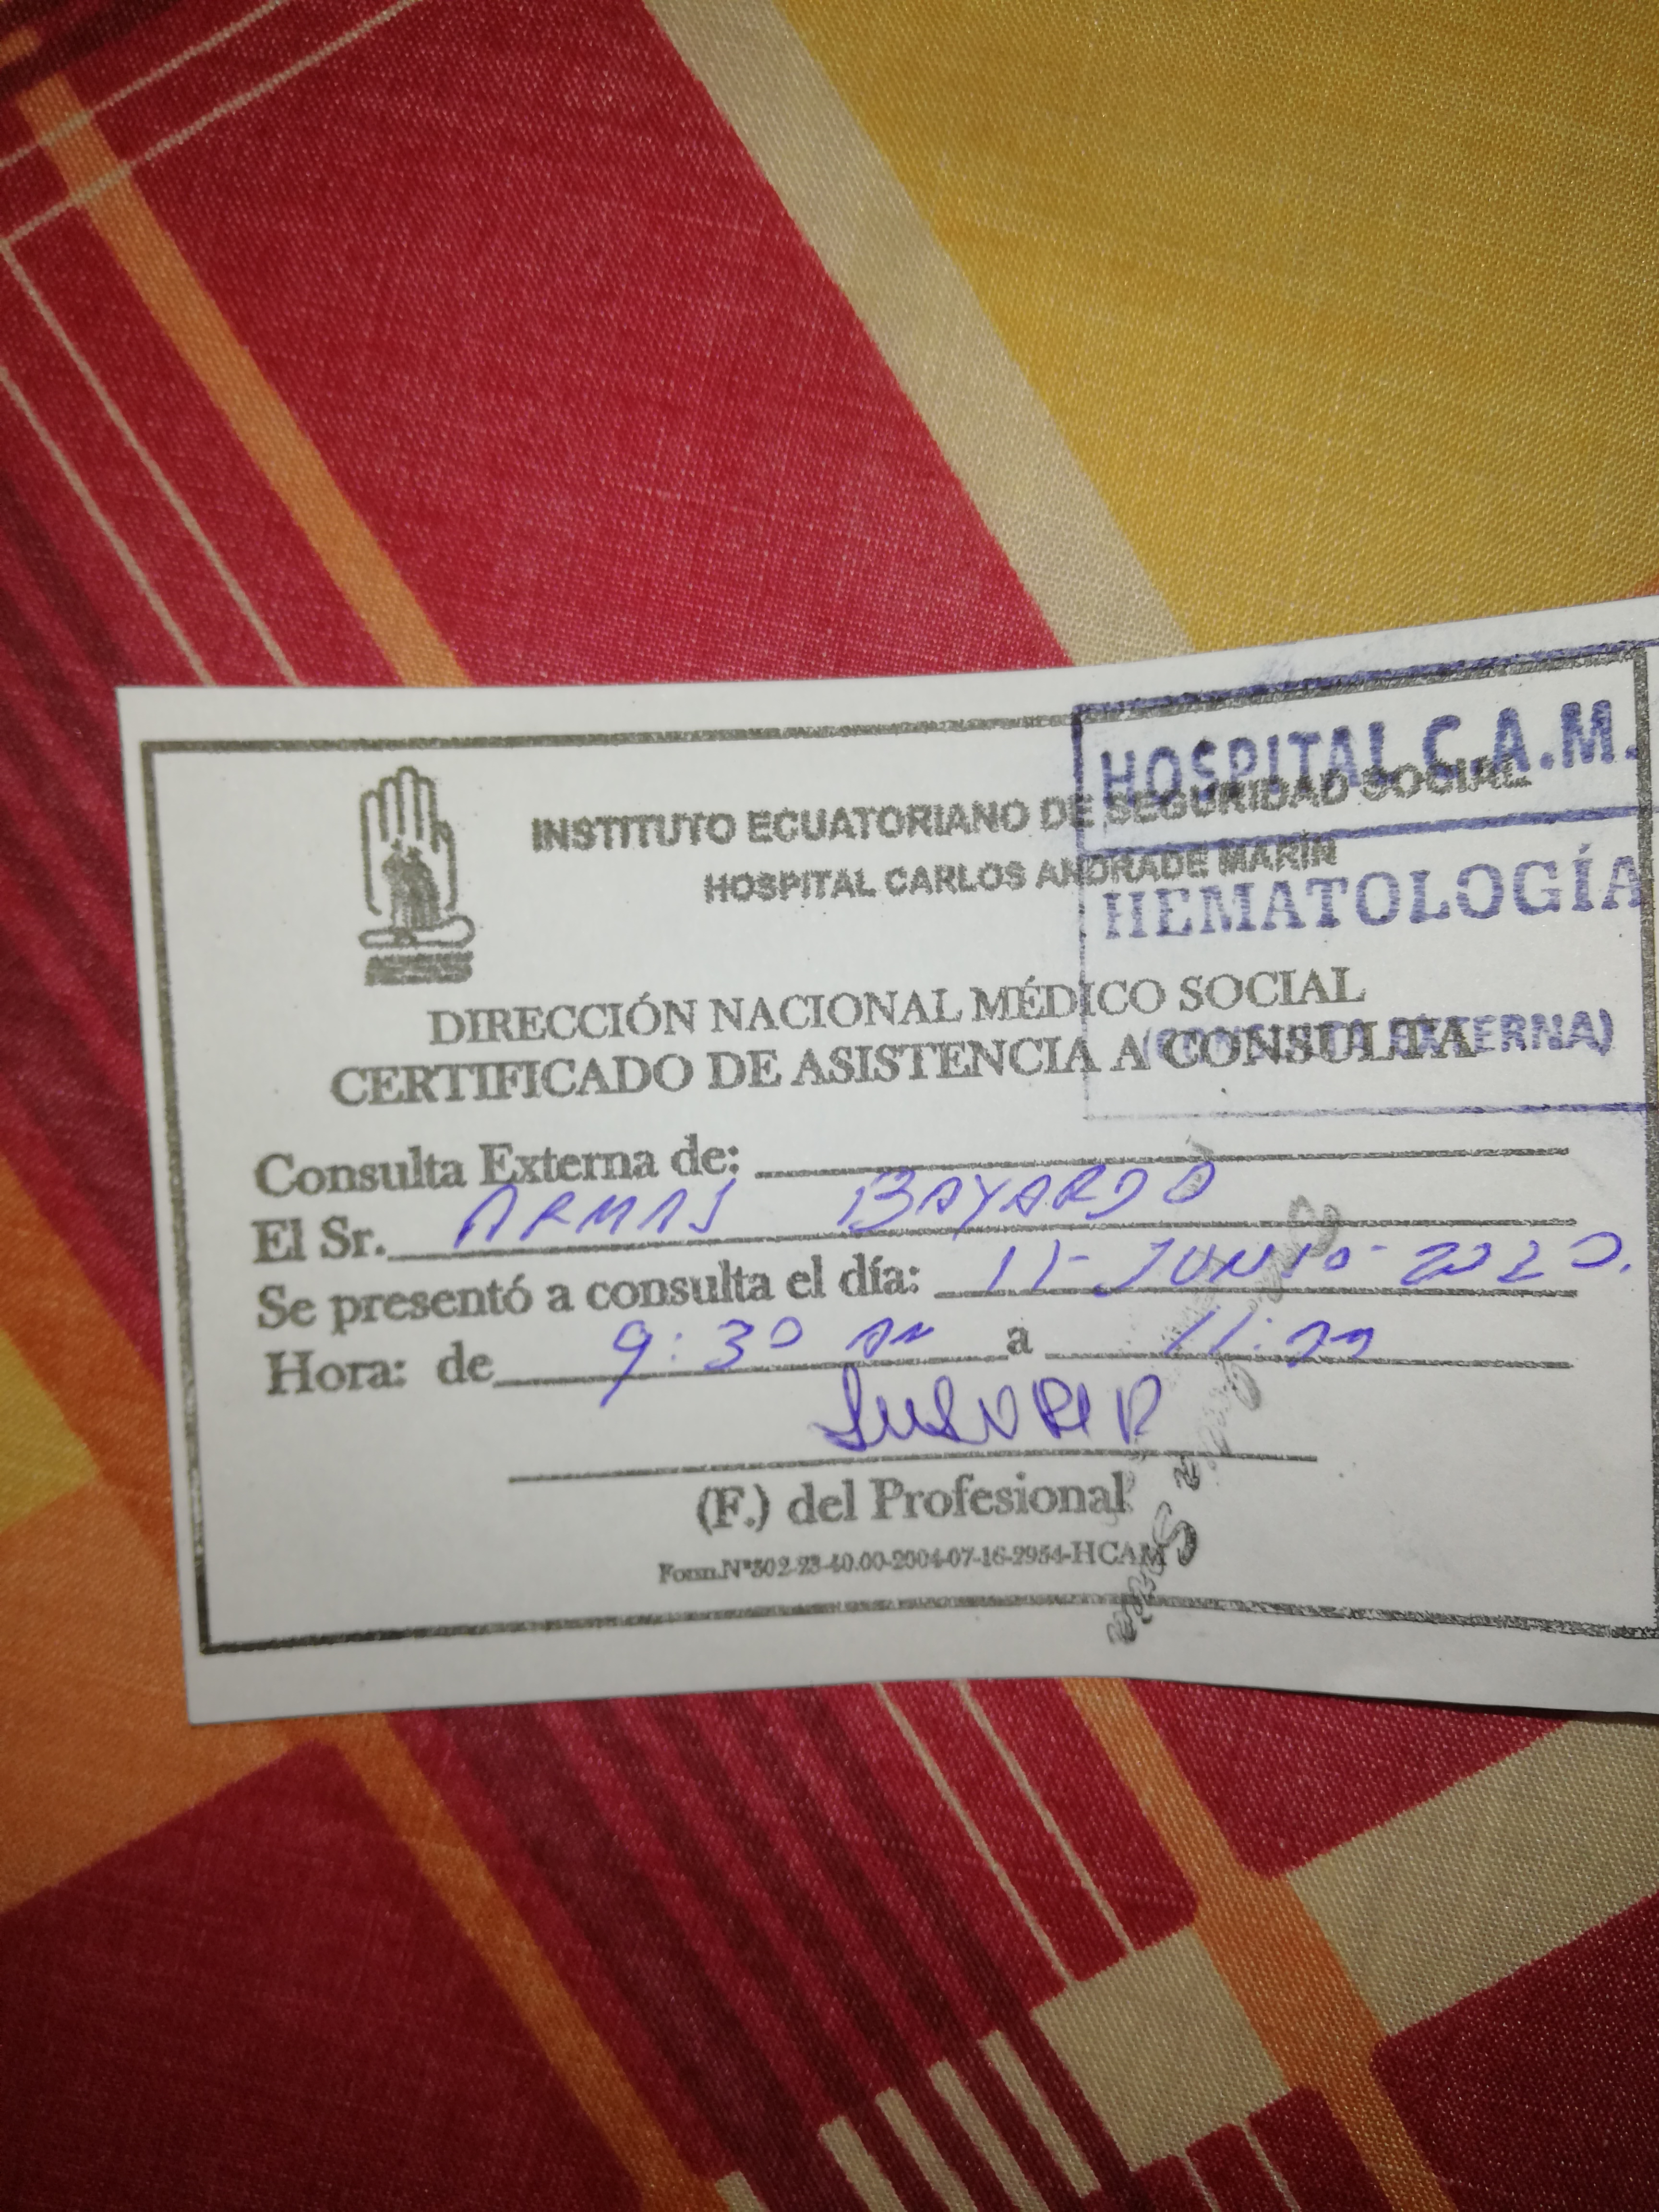 HOSPITAL C.A.M.
INSTITUTO ECUATORIANO DE SEGURIDAD SOCIAL
HOSPITAL CARLOS ANDRADE MARÍN
HEMATOLOGÍA
DIRECCIÓN NACIONAL MÉDICO SOCIAL
(CONSULTA EXTERNA)
CERTIFICADO DE ASISTENCIA A CONSULTA
Consulta Externa de:
El Sr. ARMAS BAYARDO
Se presentó a consulta el día: 11-JUNIO-2020.
Hora: de 9:30 AM a 11:
(F.) del Profesional
Form.Nº302-23-40.00-2004-07-16-2954-HCAM